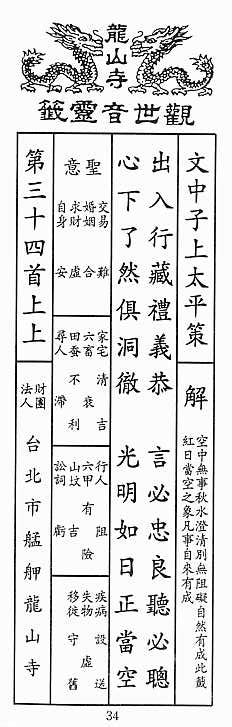 龍山寺
觀世音靈籤
文中子上太平策
解
空中無事秋水澄清別無阻礙自然有成此籤
紅日當空之象凡事自來有成
出入行藏禮義恭
言必忠良聽必聰
心下了然俱洞徹
光明如日正當空
聖意
交易難
婚姻合
求財虛
自身安
家宅清吉
六畜衰
田蠶不利
尋人滯
行人阻
六甲有險
山墳吉
訟詞虧
疾病設送
失物虛
移徙守舊
第三十四首上上
財團法人
台北市艋舺龍山寺
34